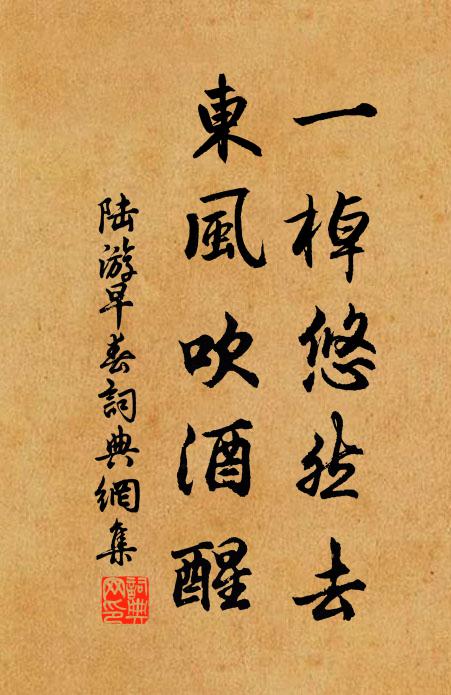 一棹悠然去
東風吹酒醒
陆游早春詞典網集
詞典
网印